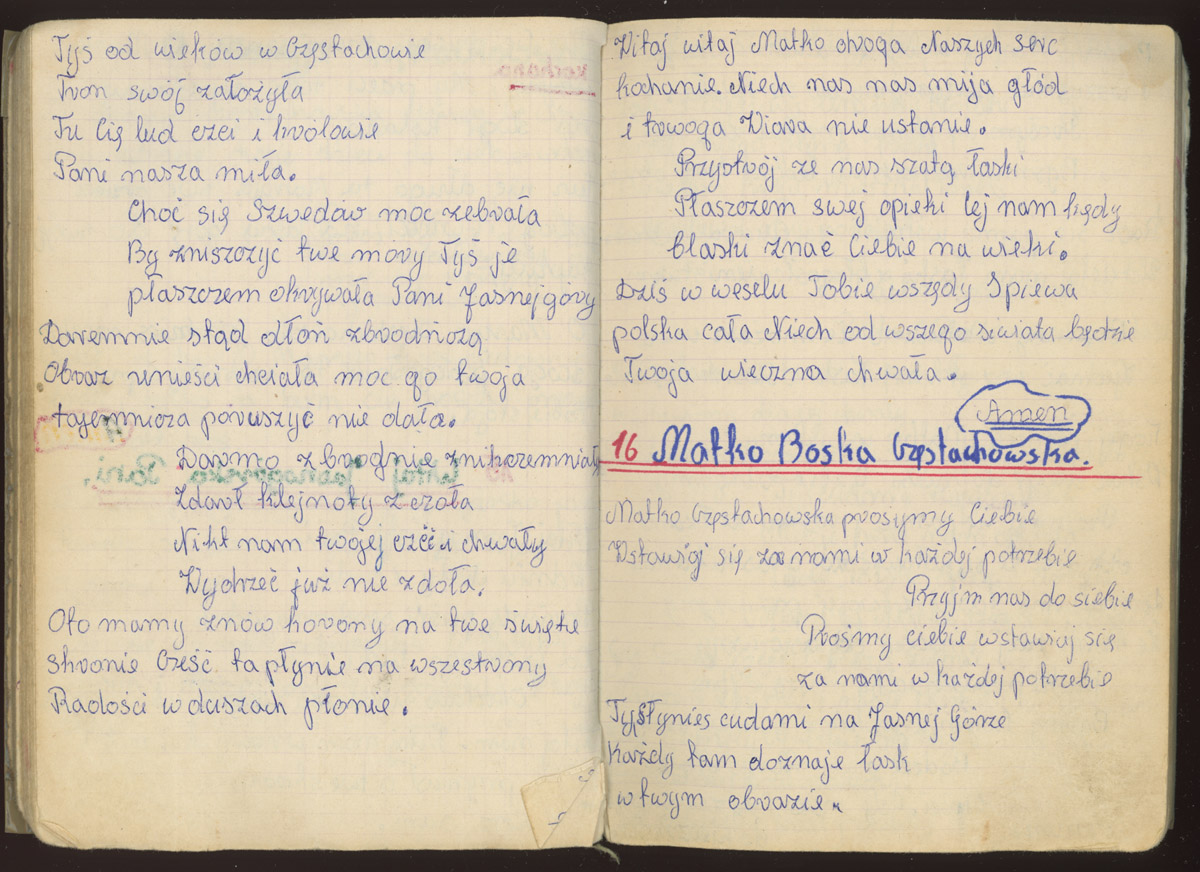 Tyś od wieków w Częstachowie
Tron swój założyła
Tu Cię lud czci i królowie
Pani nasza miła.
Choć się Szwedów moc zebrała
By zniszczyć twe mory Tyś je
płaszczem okrywała Pani Jasnej góry
Daremnie stąd dłoń zbrodńczą
Obraz unieści chciała moc go twoja
tajemnicza poruszyć nie dała.
Darmo zbrodnie znikczemniały
Zdarł klejnoty z czoła
Nikt nam twojej czći i chwały
Wydrzeć już nie zdoła.
Oto mamy znów korony na twe święte
skronie Cześć ta płynie na wszestrony
Radości w duszach płonie.
Witaj witaj Matko droga Naszych serc
kochanie. Niech nas nas mija głód
i trwoga Wiara nie ustanie.
Przystrój ze nas szatą łaski
Płaszczem swej opieki lej nam kędy
blaski znać Ciebie na wieki.
Dziś w weselu Tobie wszędy Spiewa
polska cała Niech od wszego swiata będzie
Twoja wieczna chwała.
Amen
16 Matko Boska Częstachowska.
Matko Częstachowska prosiymy Ciebie
Wstawiój się za nami w każdej potrzebie
Przyjm nas do siebie
Prośmy ciebie wstawiaj się
za nami w każdej potrzebie
Tyś słynies cudami na Jasnej Górze
Każdy tam doznaje łask
w twym obrazie.